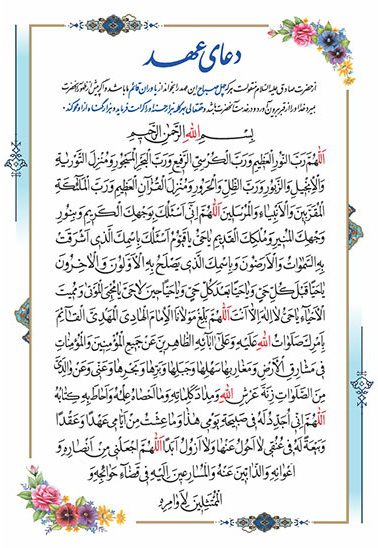 دعای عهد
از حضرت صادق علیه السلام منقولست هر که چهل صباح این عهد را بخواند از یاوران قائم ما باشد و اگر پیش از ظهور آنحضرت
بمیرد خدا او را از قبر بیرون آورد و در خدمت آنحضرت باشد و حقتعالی بهر کلمه هزار حسنه او را کرامت فرماید و هزار گناه از او محو کند.
بِسْمِ اللهِ الرَّحْمنِ الرَّحیمِ
اَللّهُمَّ رَبَّ النُّورِ الْعَظیمِ وَرَبَّ الْکُرْسِیِّ الرَّفیعِ وَرَبَّ الْبَحْرِ الْمَسْجُورِ وَمُنْزِلَ التَّوْریةِ
وَالْاِنْجیلِ وَالزَّبُورِ وَرَبَّ الظِّلِّ وَالْحَرُورِ وَمُنْزِلَ الْقُرْآنِ الْعَظیمِ وَرَبَّ الْمَلٰئِکَةِ
الْمُقَرَّبینَ وَالْاَنْبِیاءِ وَالْمُرْسَلینَ اَللّهُمَّ اِنّی اَسْئَلُکَ بِوَجْهِکَ الْکَریمِ وَبِنُورِ
وَجْهِکَ الْمُنیرِ وَمُلْکِکَ الْقَدیمِ یاحَیُّ یاقَیُّومُ اَسْئَلُکَ بِاسْمِکَ الَّذی اَشْرَقَتْ
بِهِ السَّمٰوٰاتُ وَالْاَرَضُونَ وَبِاسْمِکَ الَّذی یَصْلَحُ بِهِ الْاَوَّلُونَ وَالْاٰخِرُونَ
یاحَیّاً قَبْلَ کُلِّ حَیٍّ وَیاحَیّاً بَعْدَ کُلِّ حَیٍّ وَیاحَیّاً حینَ لاحَیَّ یامُحْیِیَ الْمَوْتیٰ وَمُمیتَ
الْاَحْیاءِ یاحَیُّ لااِلهَ اِلّا اَنْتَ اَللّهُمَّ بَلِّغْ مَوْلانَا الْاِمامَ الْهادِیَ الْمَهْدِیَّ الْقائِمَ
بِاَمْرِکَ صَلَواتُ اللهِ عَلَیْهِ وَعَلیٰ آبائِهِ الطّاهِرینَ عَنْ جَمیعِ الْمُؤْمِنینَ وَالْمُؤْمِناتِ
فی مَشارِقِ الْاَرْضِ وَمَغارِبِها سَهْلِها وَجَبَلِها وَبَرِّها وَبَحْرِها وَعَنّی وَعَنْ والِدَیَّ
مِنَ الصَّلَواتِ زِنَةَ عَرْشِ اللهِ وَمِدادَ کَلِماتِهِ وَما اَحْصاهُ عِلْمُهُ وَاَحاطَ بِهِ کِتابُهُ
اَللّهُمَّ اِنّی اُجَدِّدُ لَهُ فی صَبیحَةِ یَوْمی هٰذا وَما عِشْتُ مِنْ اَیّامی عَهْداً وَعَقْداً
وَبَیْعَةً لَهُ فی عُنُقی لا اَحُولُ عَنْها وَلا اَزُولُ اَبَداً اَللّهُمَّ اجْعَلْنی مِنْ اَنْصارِهِ وَ
اَعْوانِهِ وَالذّابّینَ عَنْهُ وَالْمُسارِعینَ اِلَیْهِ فی قَضاءِ حَوائِجِهِ وَ
الْمُمْتَثِلینَ لِاَوامِرِهِ